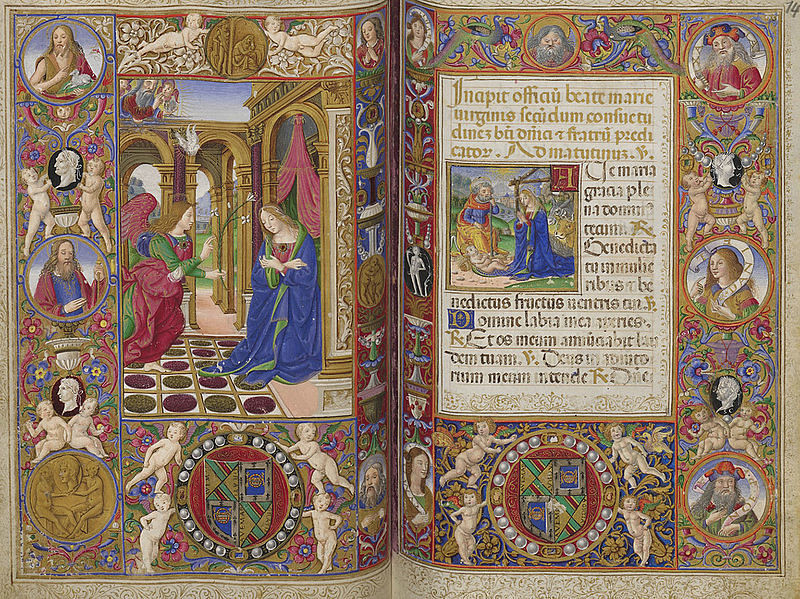 14
Incipit officiū beate marie
uirginis secūdum consuetu
dinez bti dñici & fratrū predi
cator. Ad matutinuz. V.
AUe maria
gracia ple
na domin9
tecum. R.
Benedicta
tu in mulie
ribus & be
nedictus fructus uentris tui. V.
Domine labia mea aperies.
R. Et os meum annūciabit lau
dem tuam. V. Deus in adiuto
rium meum intende R. Dñe